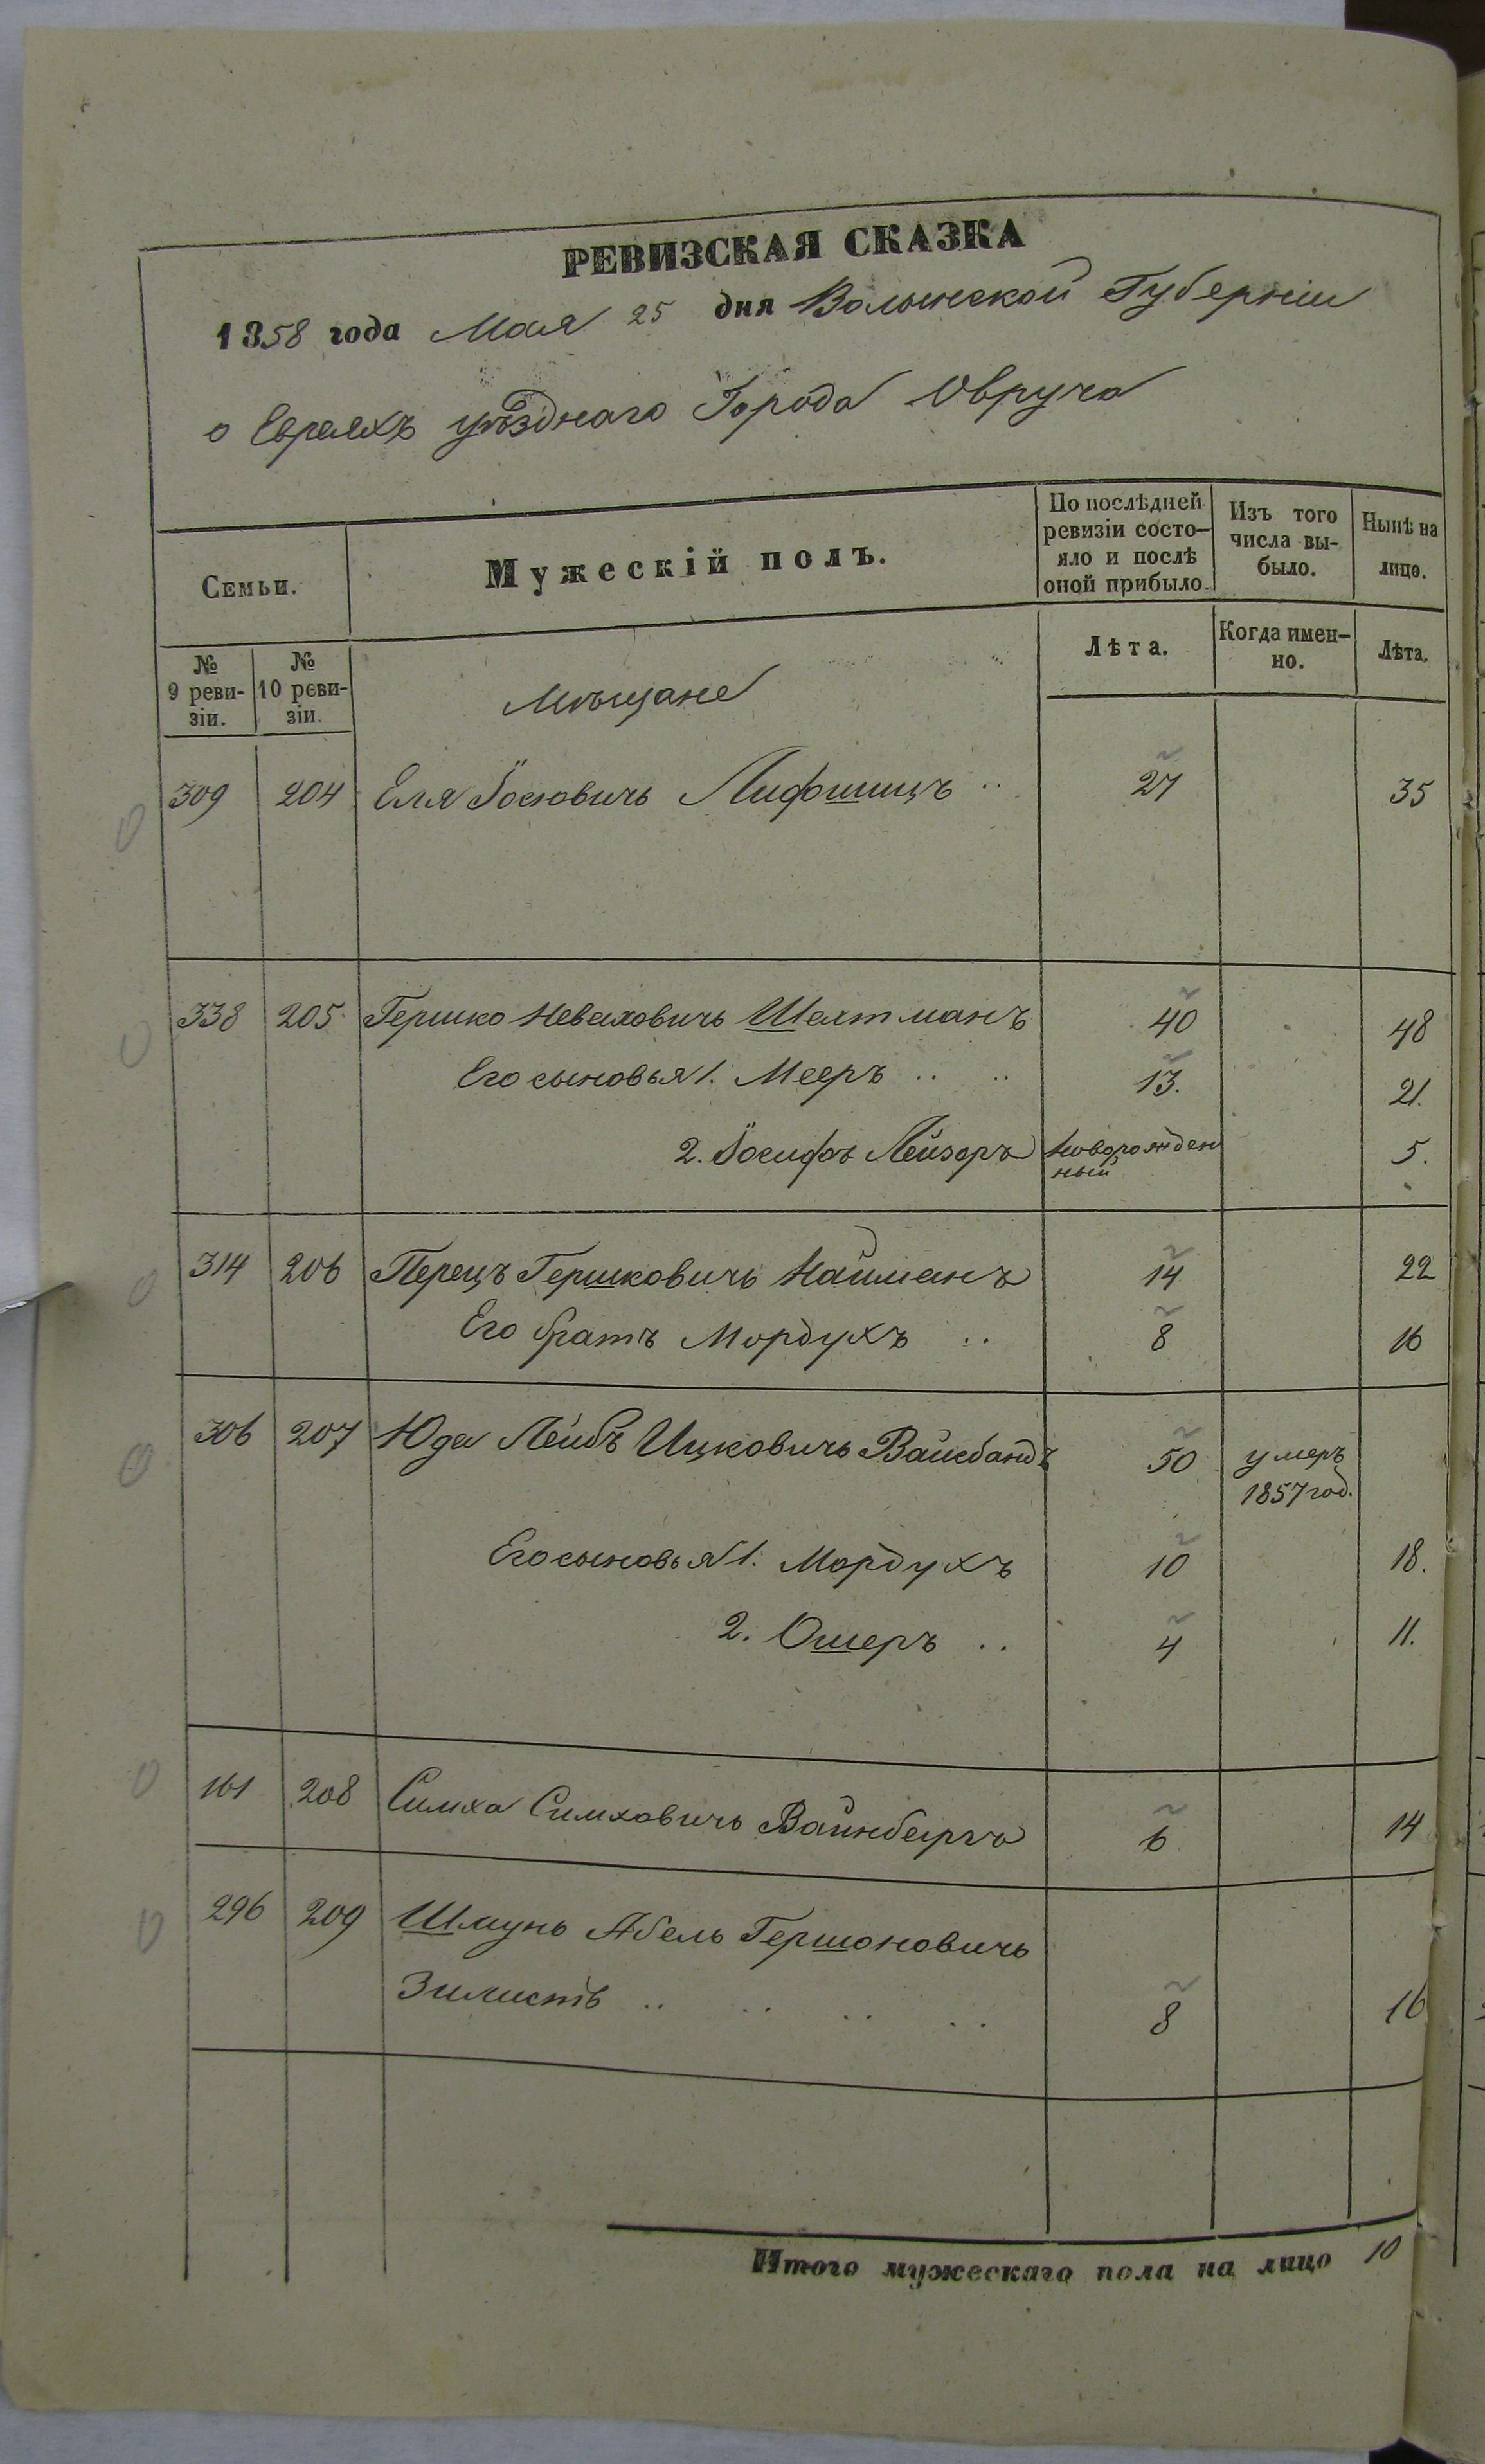 РЕВИЗСКАЯ СКАЗКА
1858 года Мая 25 дня Волынской Губерніи
о Евреяхъ уѣзднаго Города Овруча
Семьи.
Мужескій полъ.
По послѣдней ревизіи состо-
яло и послѣ оной прибыло.
Изъ того числа вы-
было.
Нынѣ на лицо.
№ 9 реви-
зіи.
№ 10 реви-
зіи.
Лѣта.
Когда имен-
но.
Лѣта.
Мѣщане
309 204 Еля Іосіовичь Лифшицъ .. 27 35
338 205 Гершко Неваховичь Шехтманъ 40 48
Его сыновья 1. Мееръ .. .. 13. 21.
2. Іосифъ Лейзоръ Новорожден
ный 5.
314 206 Перецъ Гершковичь Найманъ 14 22
Его братъ Мордухъ .. 8 16
306 207 Юда Лейбъ Ицковичь Вайсбандъ 50 умеръ
1857 год.
Его сыновья 1. Мордухъ 10 18.
2. Ошеръ .. 4 11.
161 208 Симха Симховичь Вайнбергъ 6 14
296 209 Шмунь Абель Гершоновичь
Зилистъ .. .. .. .. 8 16
Итого мужескаго пола на лицо 10